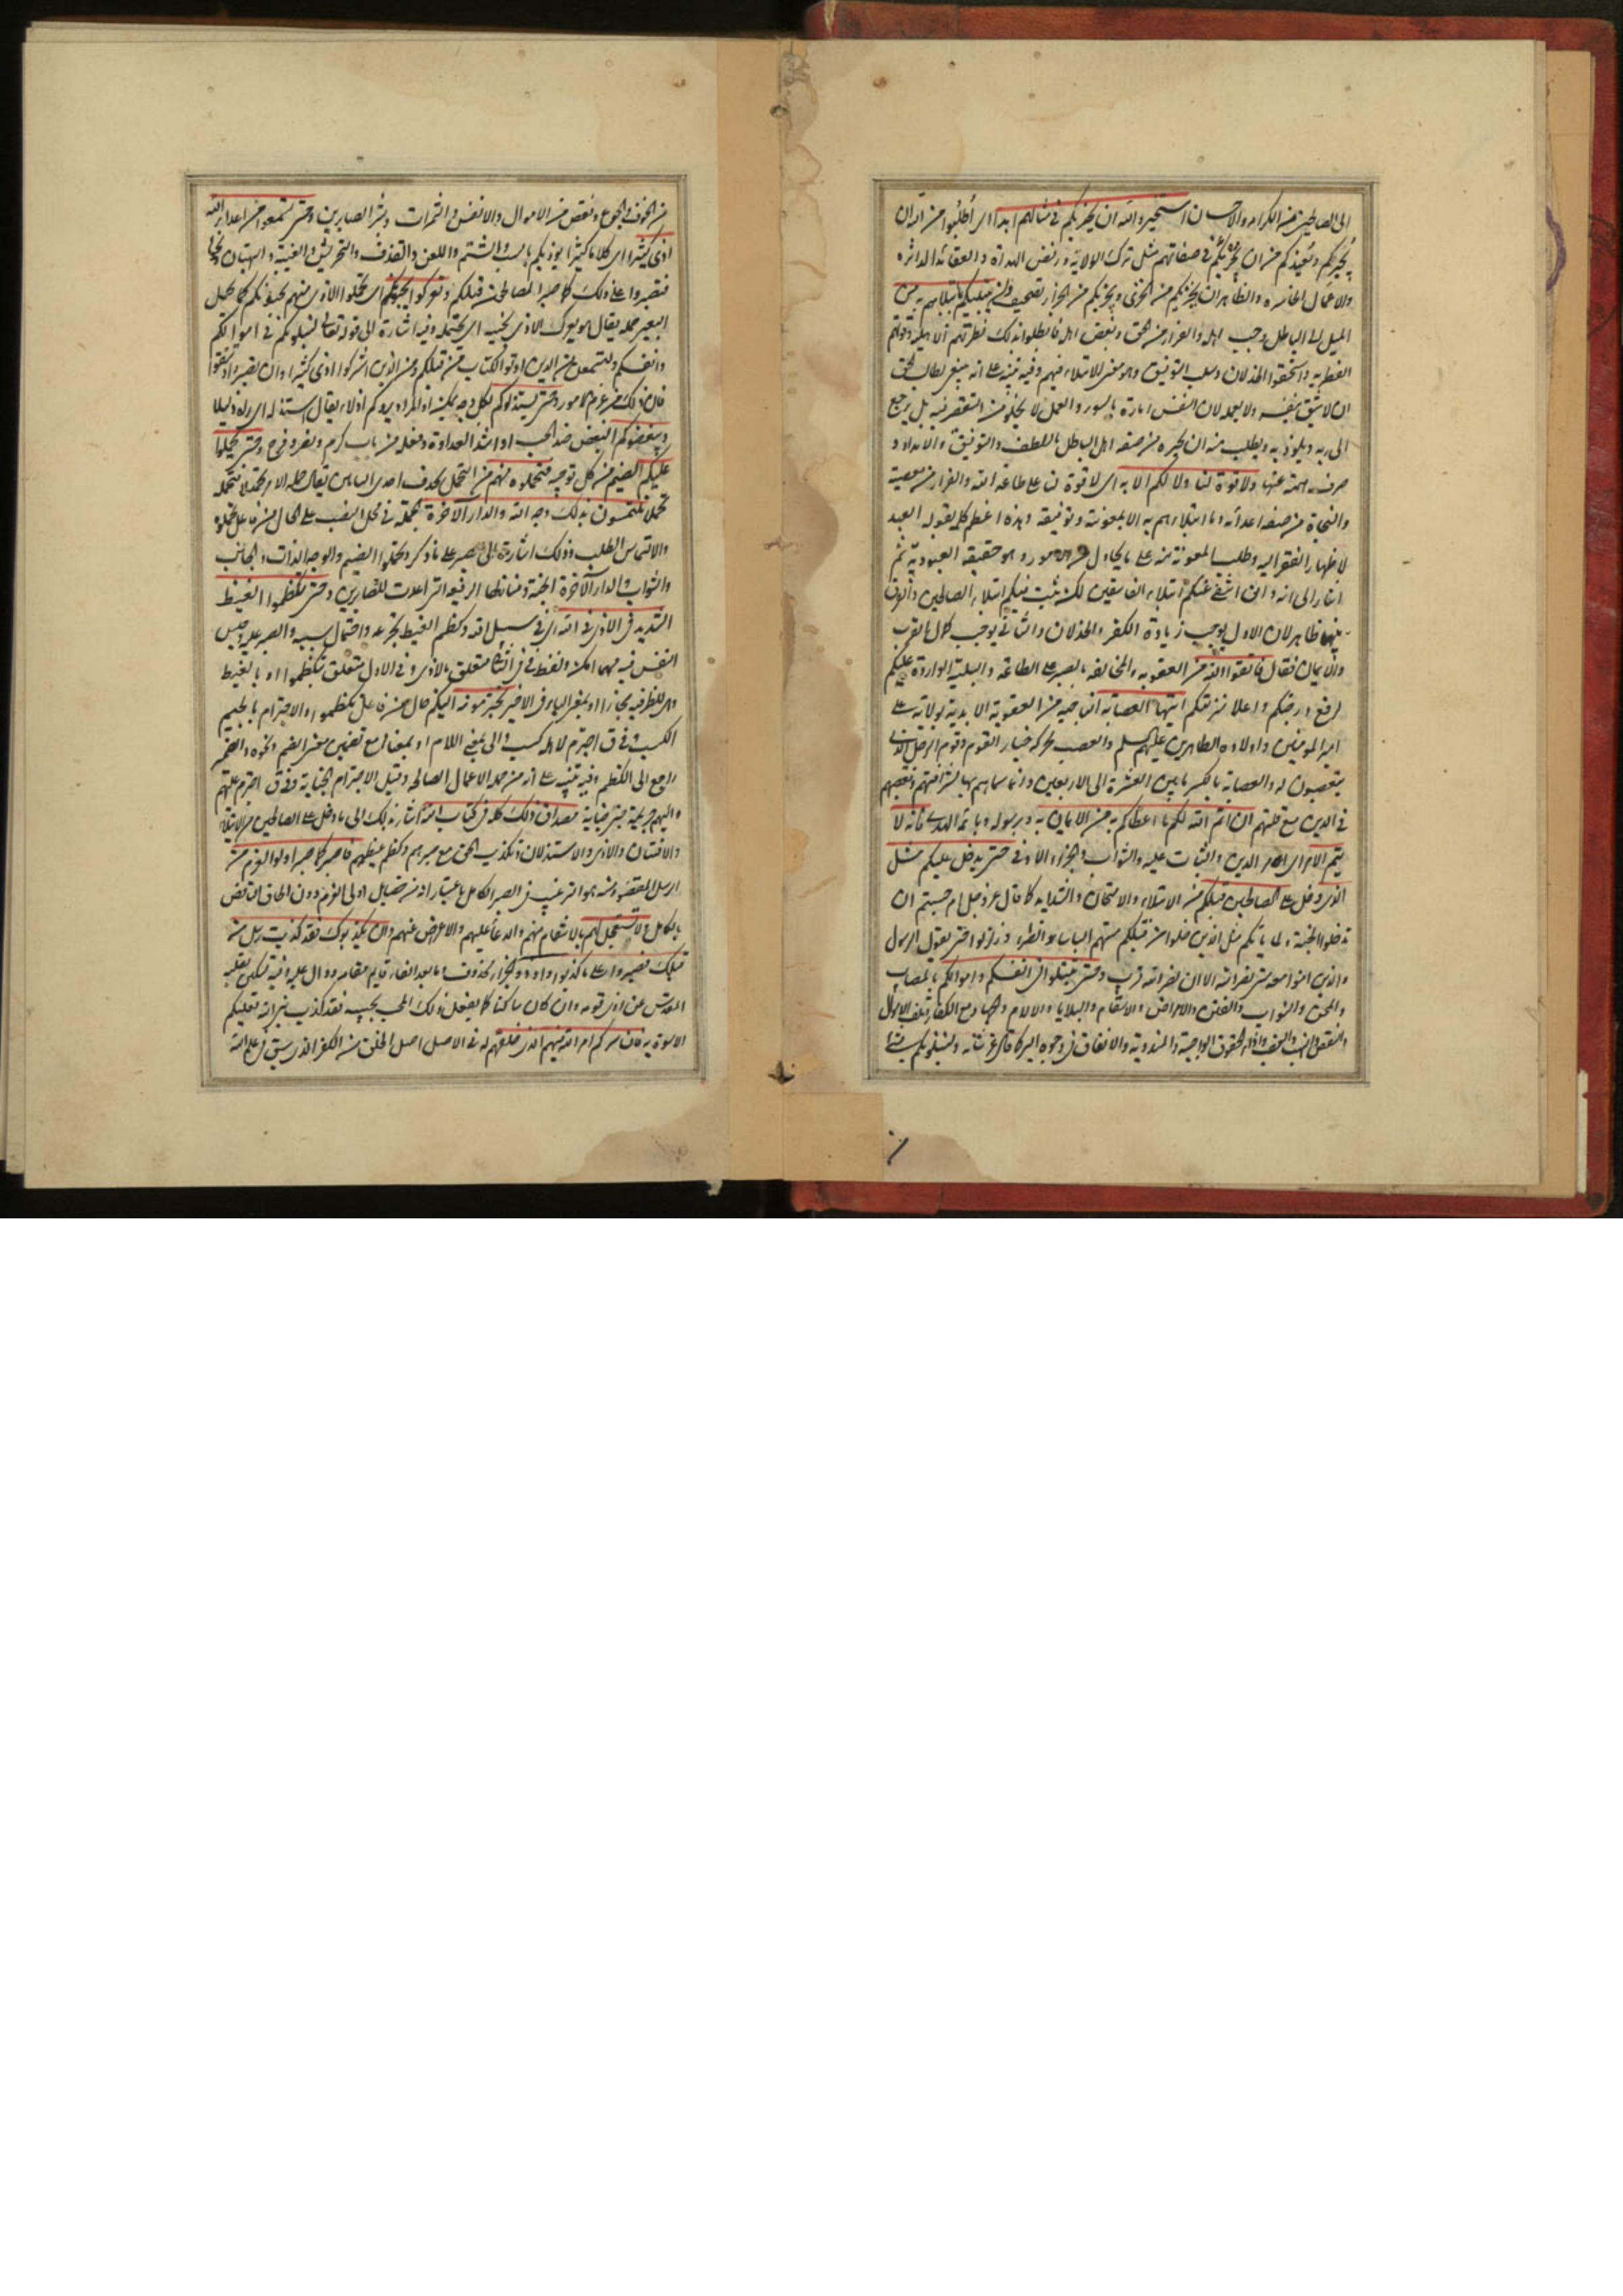 الى الصالحين من الكرامة والاحسان استخيروا الله ان يجيركم في مثالهم ابدا اى اطلبوا من الله ان
يجيركم ويعيذكم من ان يجريكم في صفاتهم مثل ترك الولاية ورفض الهداة والعقائد الدائرة
والاعمال الخاسرة والظاهر ان يجزيكم من الخزى ويجزيكم من الجزاء تصحيف ولن يبتليكم بما ابتلاهم به من
الميل الى الباطل وحب اهله والفرار من الحق وبغض اهله فابطلوا بذلك فطرتهم الاصلية وقوتهم
الفطرية واستحقوا الخذلان وسلب التوفيق وهو معنى الابتلاء فيهم وفيه تنبيه على انه ينبغي لطالب الحق
ان لا يثق بنفسه ولا بعمله لان النفس امارة بالسوء والعمل لا يخلو من التقصير فيه بل يرجع
الى ربه ويلوذ به ويطلب منه ان يجيره من صفة اهل الباطل باللطف والتوفيق والامداد و
صرف همته عنها ولا قوة لنا ولا لكم الا به اى لا قوة لنا على طاعة الله والفرار من معصيته
والنجاة من صفة اعدائه وما ابتلاهم به الا بمعونته وتوفيقه وهذه اعظم كلمة يقولها العبد
لاظهار الفقر اليه وطلب المعونة منه على ما يحاول من الامور وهو حقيقة العبودية ثم
اشار الى انه وان انتفى عنكم ابتلاء الفاسقين لكن يثبت فيكم ابتلاء الصالحين والفرق
بينهما ظاهر لان الاول يوجب زيادة الكفر والخذلان والثاني يوجب كمال القرب
والايمان فقال فاتقوا الله من العقوبة والمخالفة بالصبر على الطاعة والبلية الواردة عليكم
لرفع درجتكم واعلاء منزلتكم ايتها العصابة الناجية من العقوبة الابدية بولاية على
امير المؤمنين واولاده الطاهرين عليهم السلم والعصب محركة خيار القوم وقوم الرجل الذين
يتعصبون له والعصابة بالكسر ما بين العشرة الى الاربعين وانما سماهم بها لشرافتهم وتعصبهم
في الدين مع قلتهم ان اتم الله لكم ما اعطاكم به من الايمان به وبرسوله وبائمة الهدى فانه لا
يتم الامر اى امر الدين والثبات عليه والثواب والجزاء الاوفى حتى يدخل عليكم مثل
الذى دخل على الصالحين قبلكم من الابتلاء والامتحان والشدايد كما قال عز وجل ام حسبتم ان
تدخلوا الجنة ولما ياتكم مثل الذين خلوا من قبلكم مستهم الباساء والضراء وزلزلوا حتى يقول الرسول
والذين امنوا معه متى نصر الله الا ان نصر الله قريب وحتى تبتلوا في انفسكم واموالكم بالمصايب
والمحن والنوايب والفتن والامراض والاسقام والبلايا والالام والجهاد مع الكفار وتلف الاموال
والنقص والنهب والغصب واداء الحقوق الواجبة والمندوبة والانفاق في وجوه البر كما قال عز شانه ولنبلونكم بشئ
من الخوف والجوع ونقص من الاموال والانفس والثمرات وبشر الصابرين وحتى تسمعوا من اعداء الله
اذى كثيرا اى كلاما كثيرا يؤذيكم بالسب والشتم واللعن والقذف والتحريش والغيبة والبهتان ونحوها
فتصبروا على ذلك كما صبر الصالحون قبلكم وتعركوا بجنبكم اى تحملوا الاذى منهم بجنوبكم كما يحمل
البعير حمله يقال هو يعرك الاذى بجنبه اى يحتمله وفيه اشارة الى قوله تعالى لتبلون في اموالكم
وانفسكم ولتسمعن من الذين اوتوا الكتاب من قبلكم ومن الذين اشركوا اذى كثيرا وان تصبروا وتتقوا
فان ذلك من عزم الامور وحتى يستذلوكم بكل وجه يمكنه او المراد يروكم اذلاء يقال استذله اى راه ذليلا
ويبغضوكم البغض ضد الحب او اشد العداوة وفعله من باب كرم ونصر وفرح وحتى يحملوا
عليكم الضيم من كل توجه فتحملوه منهم من التحمل بحذف احدى التاءين يقال حمله الامر تحميلا فتحمله
تحملا تلتمسون بذلك وجه الله والدار الاخرة الجملة في محل النصب على الحال من فاعل تحملوه
والالتماس الطلب وذلك اشارة الى الصبر على ما ذكر وتحملوا الضيم والوجه الذات والجانب
والثواب والدار الاخرة الجنة ومنازلها الرفيعة التى اعدت للصابرين وحتى تكظموا الغيظ
الشديد في الاذى في الله اى في سبيل الله وكظم الغيظ تجرعه واحتمال سببه والصبر عليه وحبس
النفس فيه مهما امكن ولفظ في في الثانى متعلق بالاذى وفي الاول متعلق بتكظموا او بالغيظ
وهى للظرفية مجازا او بمعنى الباء في الاخير تجترمونه اليكم حال من فاعل تكظموا والاجترام بالجيم
الكسب وفي ق اجترم لاهله كسب والى بمعنى اللام او بمعناه مع تضمين معنى الضم ونحوه والضمير
راجع الى الكظم وفيه تنبيه على انه من جملة الاعمال الصالحة وقيل الاجترام الجناية وفي ق اجترم عليهم
واليهم جريمة جنى جناية مصداق ذلك كله في كتاب الله اشار بذلك الى ما دخل على الصالحين من الابتلاء
والافتتان والاذى والاستذلال وتكذيب الحق مع صبرهم وكظم غيظهم فاصبر كما صبر اولوا العزم من
الرسل المقصود منه هو الترغيب في الصبر الكامل باعتبار انه من خصال اولى العزم دون الحاق الناقص
بالكامل ولا تستعجل لهم بالانتقام منهم والدعاء عليهم والاعراض عنهم وان يكذبوك فقد كذبت رسل من
قبلك فصبروا على ما كذبوا واوذوا والجزاء محذوف وما بعد الفاء قايم مقامه ودال عليه وفيه تسكين لقلبه
المقدس عن اذى قومه وان كان ساكنا كما يفعل ذلك المحب بحبيبه فقد كذب نبى الله فعليكم
الاسوة به فان سركم امر الله فيهم الذى خلقهم له في الاصل اصل الخلق من الكفر الذى سبق في علم الله